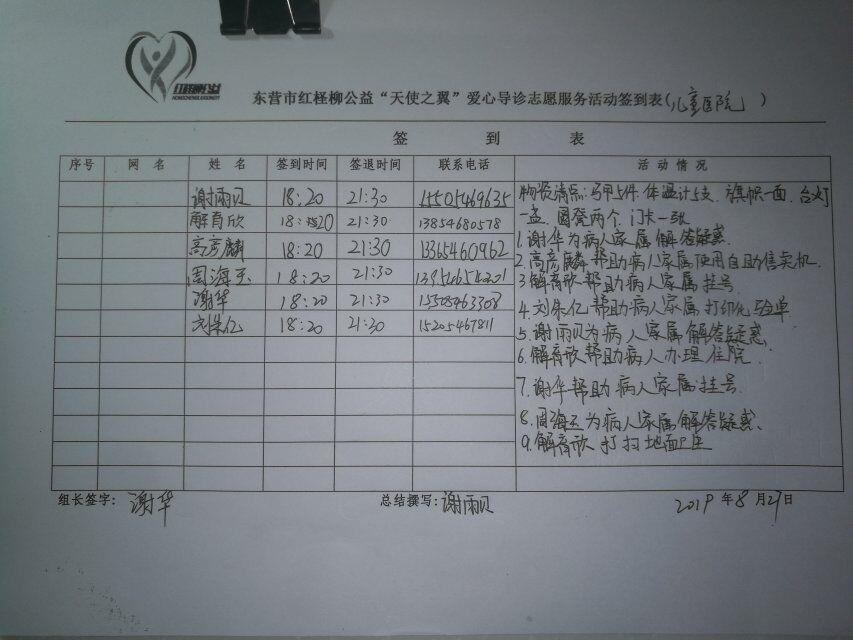 红柽柳公益
东营市红柽柳公益“天使之翼”爱心导诊志愿服务活动签到表(儿童医院)
签 到 表
序号 网 名 姓 名 签到时间 签退时间 联系电话 活动情况
谢雨贝 18:20 21:30 15505469635
解育欣 18:20 21:30 13854680578
高彦麟 18:20 21:30 13365460962
周海玉 18:20 21:30
谢华 18:20 21:30 15505463308
刘朱亿 18:20 21:30 15205467811
物资清点:马甲5件.体温计5支.旗帜一面.台灯
一盏.圆凳两个.门卡一张
1.谢华为病人家属解答疑惑.
2.高彦麟帮助病人家属使用自助售卖机.
3.解育欣帮助病人家属挂号.
4.刘朱亿帮助病人家属打印化验单
5.谢雨贝为病人家属解答疑惑.
6.解育欣帮助病人办理住院
7.谢华帮助病人家属挂号
8.周海玉为病人家属解答疑惑.
9.解育欣打扫地面卫生
组长签字: 谢华 总结撰写:谢雨贝 2019年8月27日